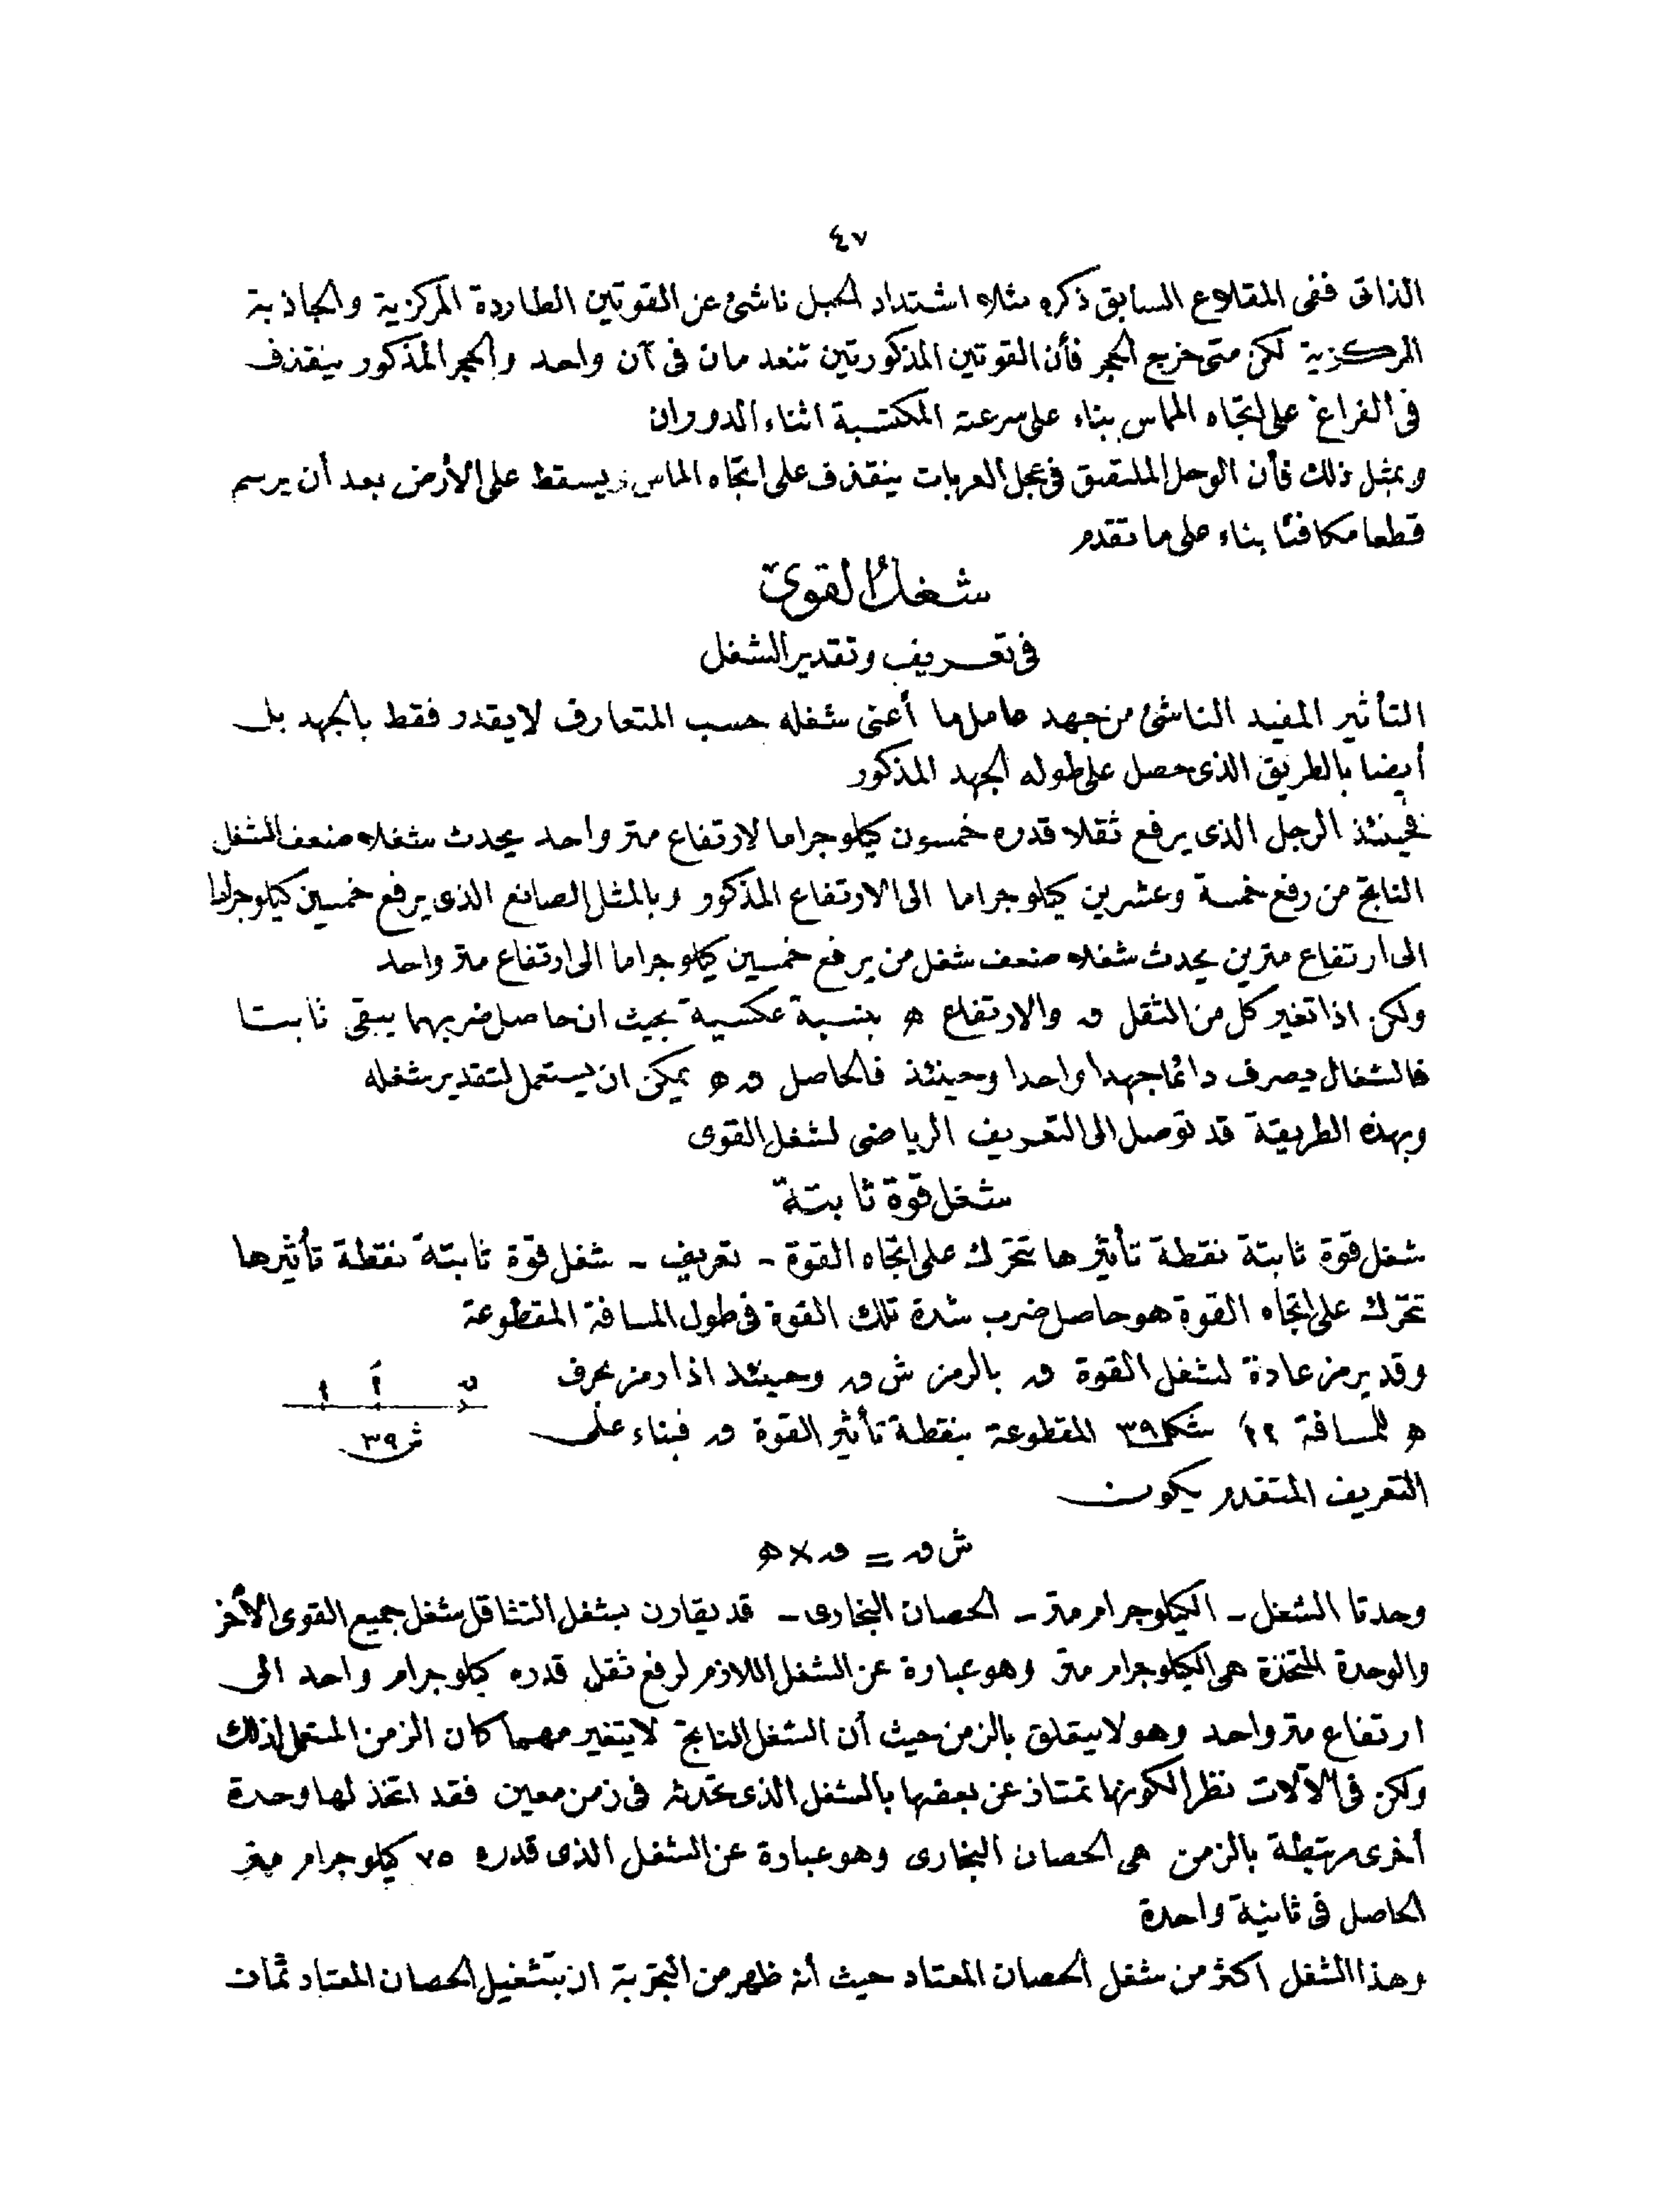 ٤٧
الذاتى ففى المقلاع السابق ذكره مثلا اشتداد الحبل ناشئ عن القوتين الطاردة المركزية والجاذبة
المركزية لكن متى خرج الحجر فأن القوتين المذكورتين تنعدمان فى آن واحد والحجر المذكور ينقذف
فى الفراغ على اتجاه المماس بناء على سرعته المكتسبة اثناء الدوران
وبمثل ذلك فأن الوحل الملتصق فى عجل العربات ينقذف على اتجاه المماس ويسقط على الأرض بعد أن يرسم
قطعا مكافئا بناء على ما تقدم
شغل القوى
فى تعريف وتقدير الشغل
التأثير المفيد الناشئ من جهد عامل ما أعنى شغله حسب المتعارف لا يقدر فقط بالجهد بل
أيضا بالطريق الذى حصل على طوله الجهد المذكور
فحينئذ الرجل الذى يرفع ثقلا قدره خمسون كيلوجراما لارتفاع متر واحد يحدث شغلا ضعف الشغل
الناتج من رفع خمسة وعشرين كيلوجراما الى الارتفاع المذكور وبالمثل الصانع الذى يرفع خمسين كيلوجراما
الى ارتفاع مترين يحدث شغلا ضعف شغل من يرفع خمسين كيلوجراما الى ارتفاع متر واحد
ولكن اذا تغير كل من الثقل ق والارتفاع ه بنسبة عكسية بحيث ان حاصل ضربهما يبقى ثابتا
فالشغال يصرف دائما جهدا واحدا وحينئذ فالحاصل ق ه يمكن ان يستعمل لتقدير شغله
وبهذه الطريقة قد توصل الى التعريف الرياضى لشغل القوى
شغل قوة ثابتة
شغل قوة ثابتة نقطة تأثيرها تتحرك على اتجاه القوة - تعريف - شغل قوة ثابتة نقطة تأثيرها
تتحرك على اتجاه القوة هو حاصل ضرب شدة تلك القوة فى طول المسافة المقطوعة
وقد يرمز عادة لشغل القوة ق بالرمز ش ق وحينئذ اذا رمز بحرف
ه للمسافة أأ شكل ٣٩ المقطوعة بنقطة تأثير القوة ق فبناء على
التعريف المتقدم يكون
ق أ أ
ش ٣٩
ش ق = ق × ه
وحدتا الشغل - الكيلوجرام متر - الحصان البخارى - قد يقارن بشغل التثاقل شغل جميع القوى الأخر
والوحدة المتخذة هى الكيلوجرام متر وهو عبارة عن الشغل اللازم لرفع ثقل قدره كيلوجرام واحد الى
ارتفاع متر واحد وهو لا يتعلق بالزمن حيث أن الشغل الناتج لا يتغير مهما كان الزمن المستعمل لذلك
ولكن فى الآلات نظرا لكونها تمتاز عن بعضها بالشغل الذى تحدثه فى زمن معين فقد اتخذ لها وحدة
أخرى مرتبطة بالزمن هى الحصان البخارى وهو عبارة عن الشغل الذى قدره ٧٥ كيلوجرام متر
الحاصل فى ثانية واحدة
وهذا الشغل اكثر من شغل الحصان المعتاد حيث أنه ظهر من التجربة ان بتشغيل الحصان المعتاد ثمان